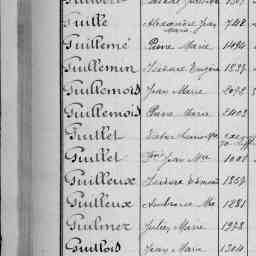 Guillé Alexandre Jean Marie 748
Guillemé Pierre Marie 1494
Guillemin Isidore Eugène 1237
Guillemois Jean Marie 2072
Guillemois Pierre Marie 2403
Guillet
Guillet Jean Mie 1008
Guilleux Isidore 1257
Guilleux Ambroise Mie 1281
Guilmer Julien Marie 1978
Guillois Jean Marie 1304